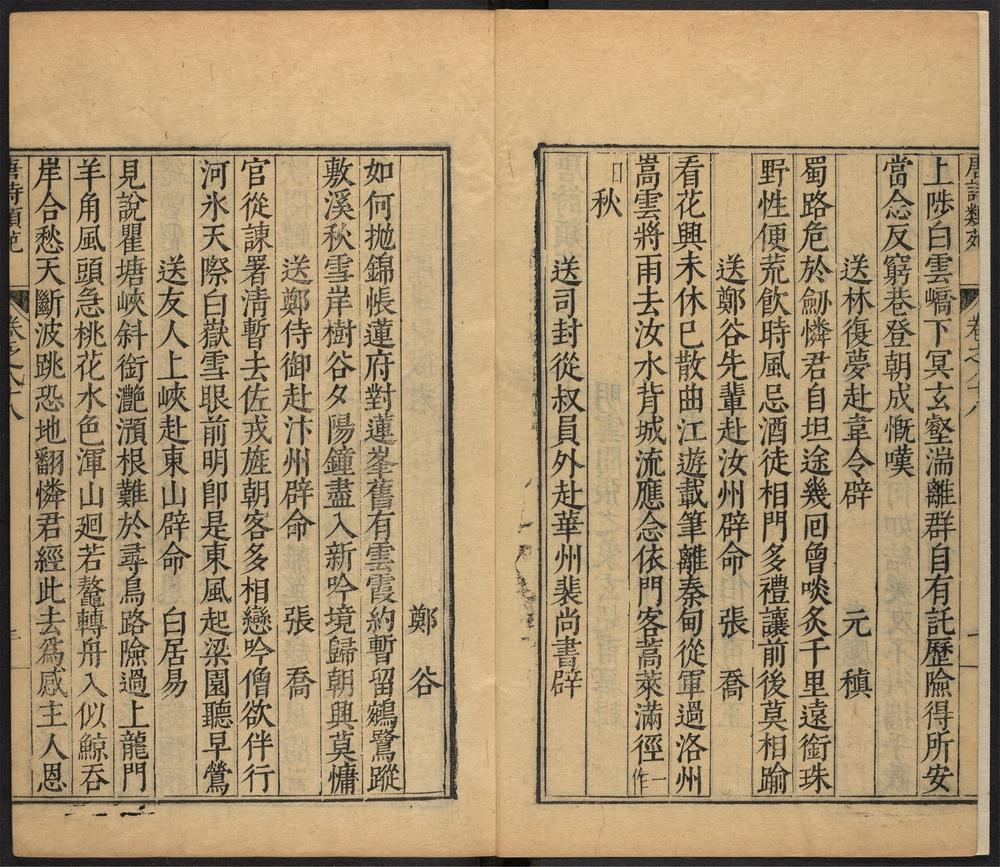 唐詩類苑
卷之
一
上陟白雲嶠下冥玄壑湍離群自有託歷險得所安
當念反窮巷登朝成慨嘆
送林復夢赴韋令辟 元稹
蜀路危於劒憐君自坦途幾回曾啖炙千里遠銜珠
野性便荒飲時風忌酒徒相門多禮讓前後莫相踰
送鄭谷先輩赴汝州辟命 張喬
看花興未休已散曲江遊載筆離秦甸從軍過洛州
嵩雲將雨去汝水背城流應念依門客蒿萊滿徑一作
秋
送司封從叔員外赴華州裴尚書辟
鄭谷
如何拋錦帳蓮府對蓮峯舊有雲霞約暫留鵷鷺蹤
敷溪秋雪岸樹谷夕陽鐘盡入新吟境歸朝興莫慵
送鄭侍御赴汴州辟命 張喬
官從諫署清暫去佐戎旌朝客多相戀吟僧欲伴行
河氷天際白嶽雪眼前明卽是東風起梁園聽早鶯
送友人上峽赴東山辟命 白居易
見說瞿塘峽斜銜灔澦根難於尋鳥路險過上龍門
羊角風頭急桃花水色渾山廻若鼇轉舟入似鯨吞
岸合愁天斷波跳恐地翻憐君經此去爲感主人恩
唐詩類苑